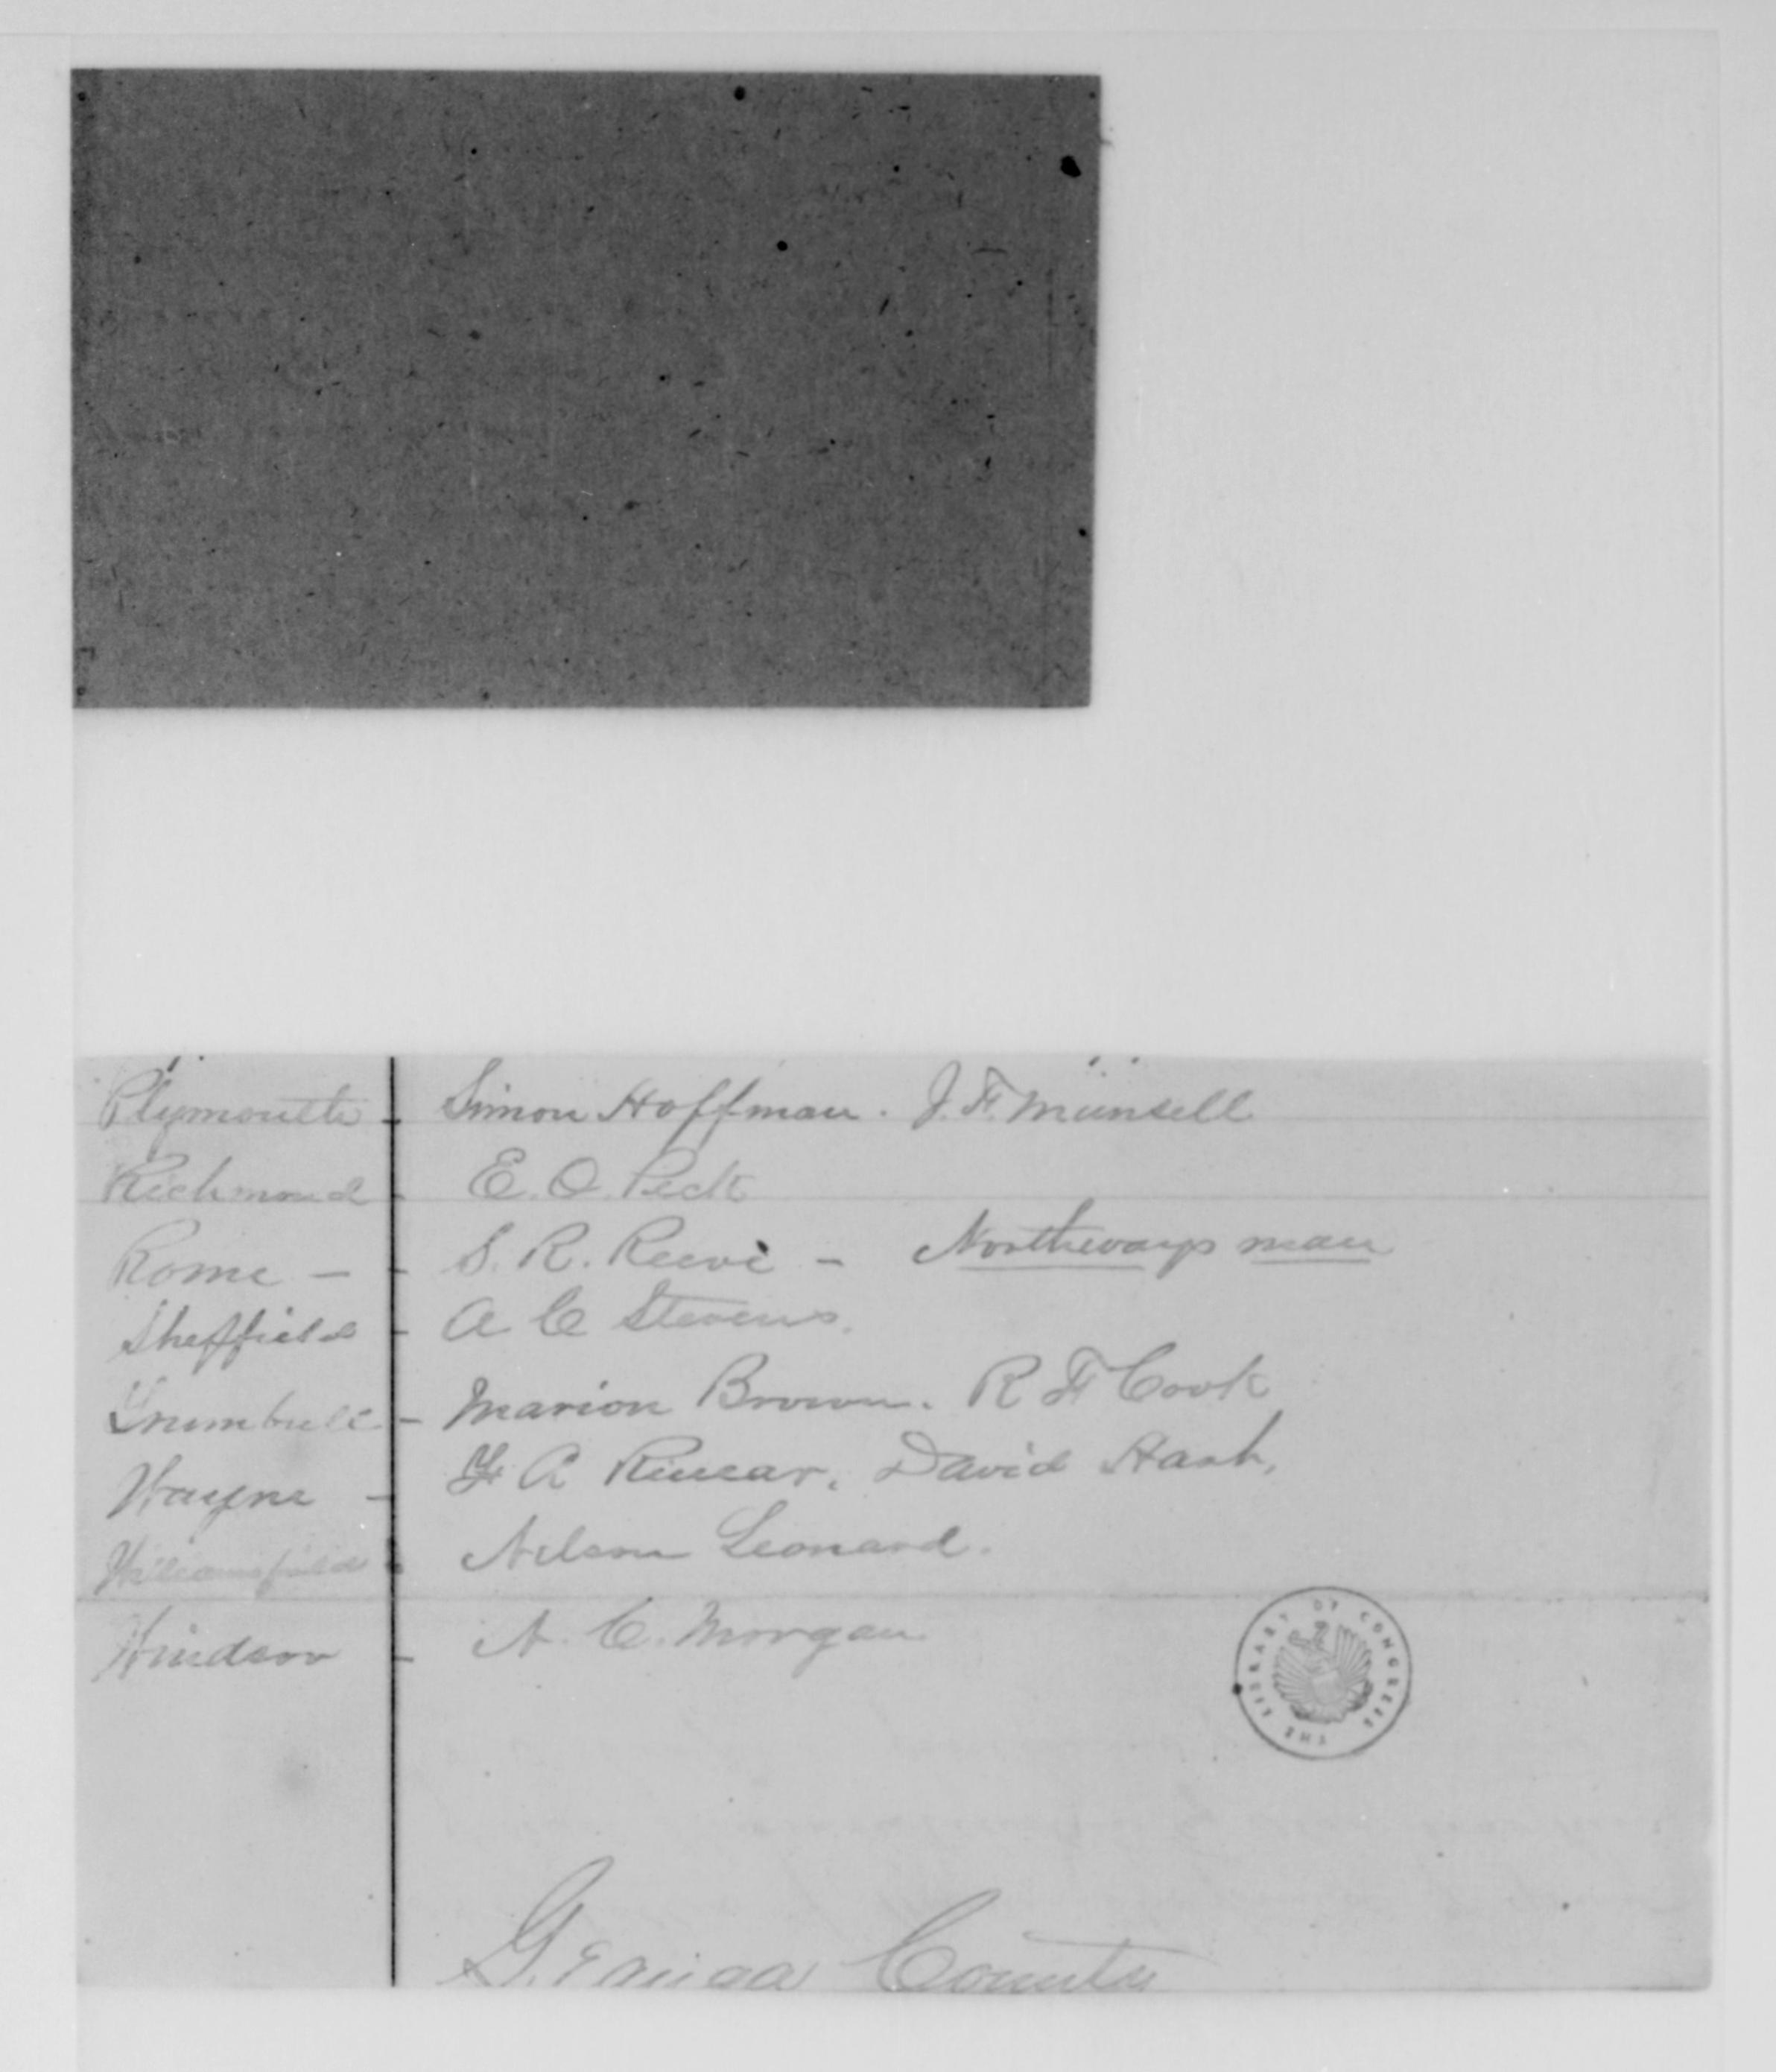 Plymouth - Simon Hoffman. J. F. Munsell
Richmond - E. O. Peck
Rome - - S. R. Reeve - Northways man
Sheffield - A C Stevens.
Trumbull - Marion Brown. R F Cook
Wayne - F A Kinear. David Hart,
Williamsfield - Nelson Leonard.
Windsor - A. C. Morgan
THE LIBRARY OF CONGRESS
Geauga County